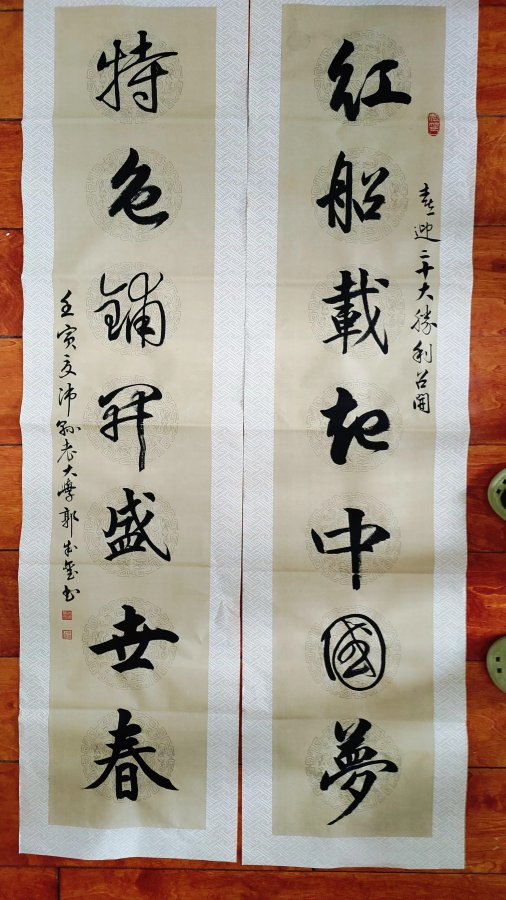 喜迎二十大勝利召開
紅船載起中國夢
特色鋪開盛世春
壬寅夏沛縣老大學郭成书